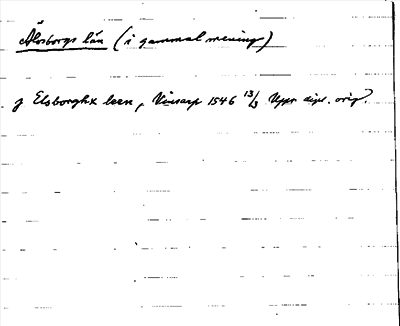 Älvsborgs län (i gammal mening)
J Elsborghx leen, Vinsarp 1546 13/3 Upps dipl. orig.